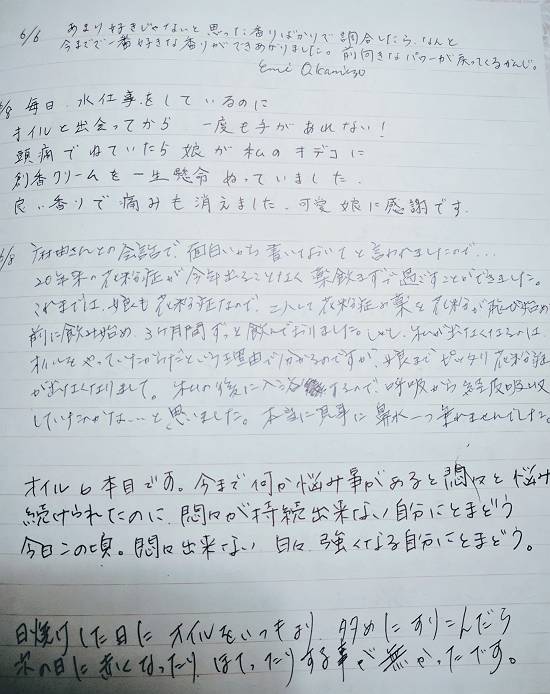 6/6 あまり好きじゃないと思った香りばかりで調合したら、なんと
今までで一番好きな香りができあがりました。前向きなパワーが戻ってくるかんじ。
Emi
6/8 毎日、水仕事をしているのに
オイルと出会ってから 一度も手があれない!
頭痛でねていたら 娘が私のオデコに
創香クリームを一生懸命ぬっていました.
良い香りで痛みも消えました、可愛娘に感謝です.
6/8 さんとの会話で、面白いから書いておいてと言われましたので...
20年来の花粉症が今年出ることなく薬飲まずで過ごすことができました。
これまでは、娘も花粉症なので、二人して花粉症の薬を花粉が飛び始め
前に飲み始め、3ヶ月間ずっと飲んでおりました。しかし、私が出なくなるのは
オイルをやっていたからだという理由で分かるのですが、娘までピッタリ花粉症
が出なくなりまして。私の後に入浴するので、呼吸から経皮吸収
していたのかな...と思いました。本当に見事に鼻水一つ垂れませんでした。
オイル6本目です。今まで何か悩み事があると悶々と悩み
続けられたのに、悶々が持続出来ない自分にとまどう
今日この頃。悶々出来ない 日々 強くなる自分にとまどう。
日焼けした日に オイルをいつもより 多めにすりこんだら
次の日に赤くなったり、ほてったりする事が無かったです。